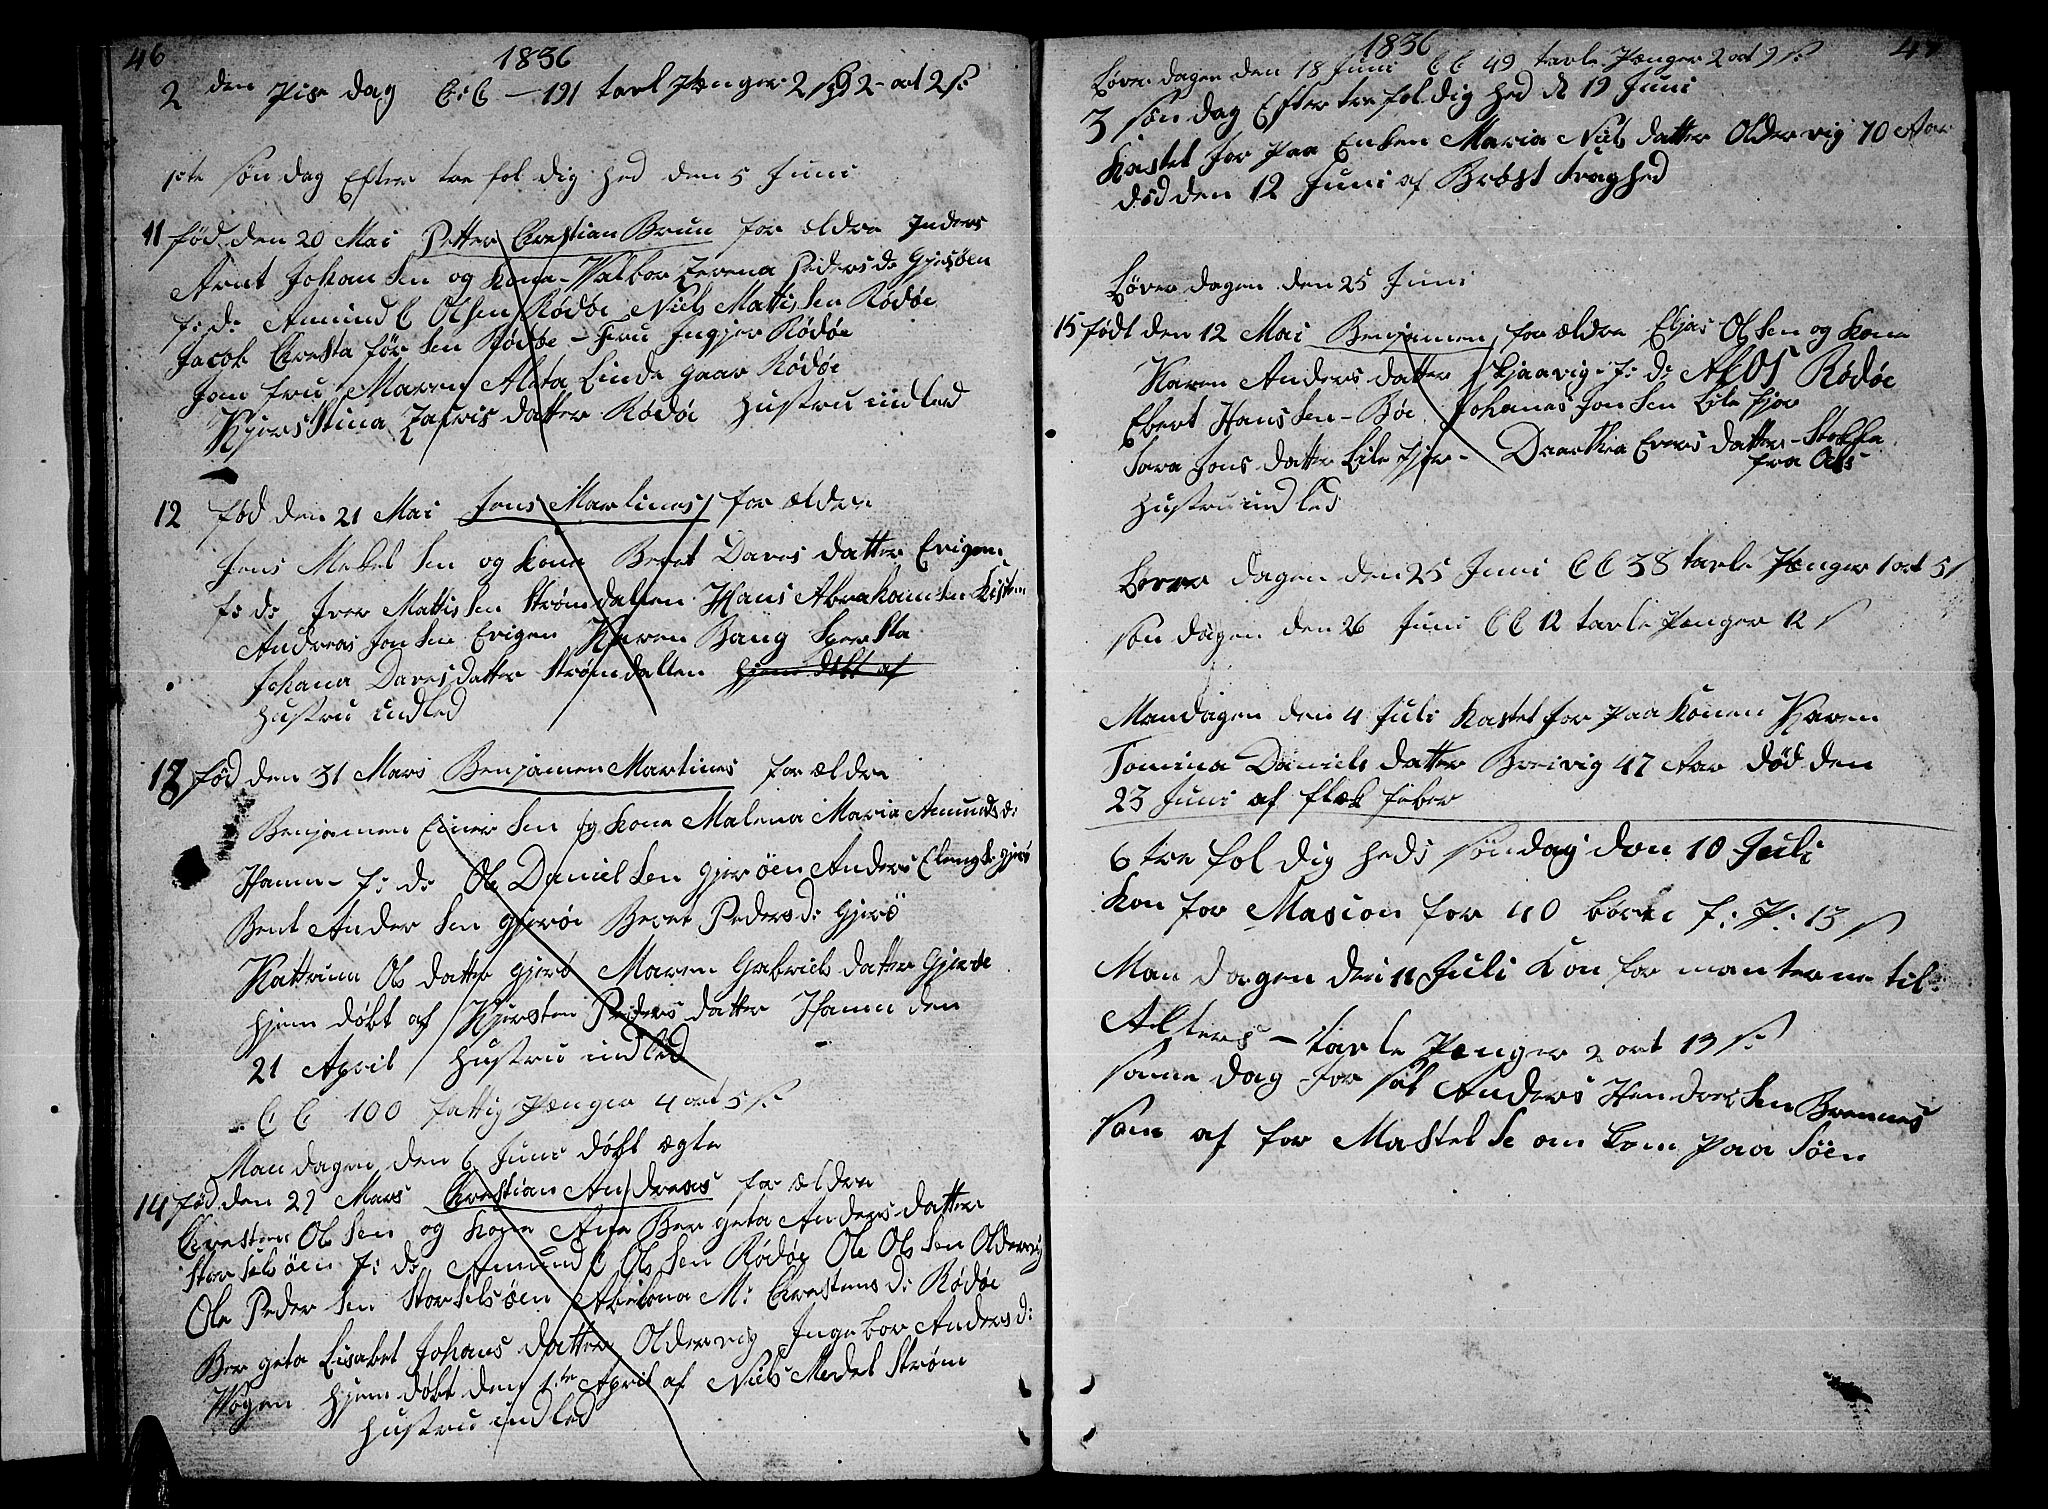 46
1836
2 den Pise dag C: C - 191 tavl Penger 2 2 ort 2 s:
1ste søn dag Efter tre fol dig hed den 5 Juni
11 fød den 20 Mai Petter Crestian Brun for ældre Inders
Arnt Johan sen og kone Valbor Zerena Pedersd: Gjersöen
f: d: Amund C Olsen Rödöe Niels Mattis sen Rödöe
Jacob Cresta før sen Rödöe - Fru Ingjer Rödöe
Jom fru Maren Aleta Linde gaar Rödöe
Kjers Stina Zakris datter Rödöe Hustru indled
12 fød den 21 Mai Jens Martines for ældre
Jens Mekel sen og kone Beret Dares datter Evigen
f: d: Iver Mattis sen Strømdallen Hans Abrahamsen
Andreas Jon sen Evigen Karen Bang
Johana Daresdatter Strømdallen hjem døbt af
Hustru indled
13 fød den 31 Mars Benjamen Martines for ældre
Benjamen Einer sen og kone Malena Maria Amunds d:
Hamn - f: d: Ole Daniel sen gjerøen Anders
Bent Ander sen gjerøe Beret Pedersd: Gjerö
Kattrina Ols datter gjerö Maren Gabriels datter Gjeröe
hjem døbt af Kjersten Peders datter Hamn den
21 April Hustru indled
C C 100 fattig Penger 4 ort 5 s:
Man dagen den 6 Juni døbt ægte
14 fød den 22 Mars Crestian Andreas for ældre
Cresten Ol sen og kone Ane Ber geta Anders datter
Stor Selsöen f: d: Amund C Ol sen Rödöe Ole Ol sen Oldervig
Ole Peder sen Stor Selsöen Abelona M: Crestens d: Rödöe
Ber geta Lisabet Johans datter Oldervig Inge bor Anders d:
Vøgen hjem døbt den 1te April af Niels Medel Strøm
Hustru indled
1836
47
Løver dagen den 18 Juni C C 49 tavle Penger 2 ort 9 s:
3 søn dag Efter tre fol dig hed d 19 Juni
Kastet Jor Paa Enken Maria Niels datter Oldervig 70 Aar
død den 12 Juni af Bröst svaghed
Løver dagen den 25 Juni
15 født den 12 Mai Benjamen for ældre Eljas Ol sen og kone
Karen Anders datter Skjaavig - f: d: Rödöe
Ebert Hans sen - Böe Johanes Jon sen Lile fjor
Sara Jons datter Lile fjor - Daarthea Evers datter
fra
Hustru indled
Løver dagen den 25 Juni C C 38 tavle Penger 1 ort 5 s
søn dagen den 26 Juni C C 12 tavle Penger 12 s
Mandagen den 4 Juli Kastet Jor Paa Konen Karen
Tomina Daniels datter Breivig 47 Aar död den
23 Juni af flæk feber
6 tre fol dig heds søndag den 10 Juli
Kon for Masion for 40 börn f: P: 13 s
Man dagen den 11 Juli Kon for man terne til
Alters - tavle Penger 2 ort 13 s:
same dag Jor sat Anders Hendrek sen Brennes
som af for Mastel se om kom Paa Söen